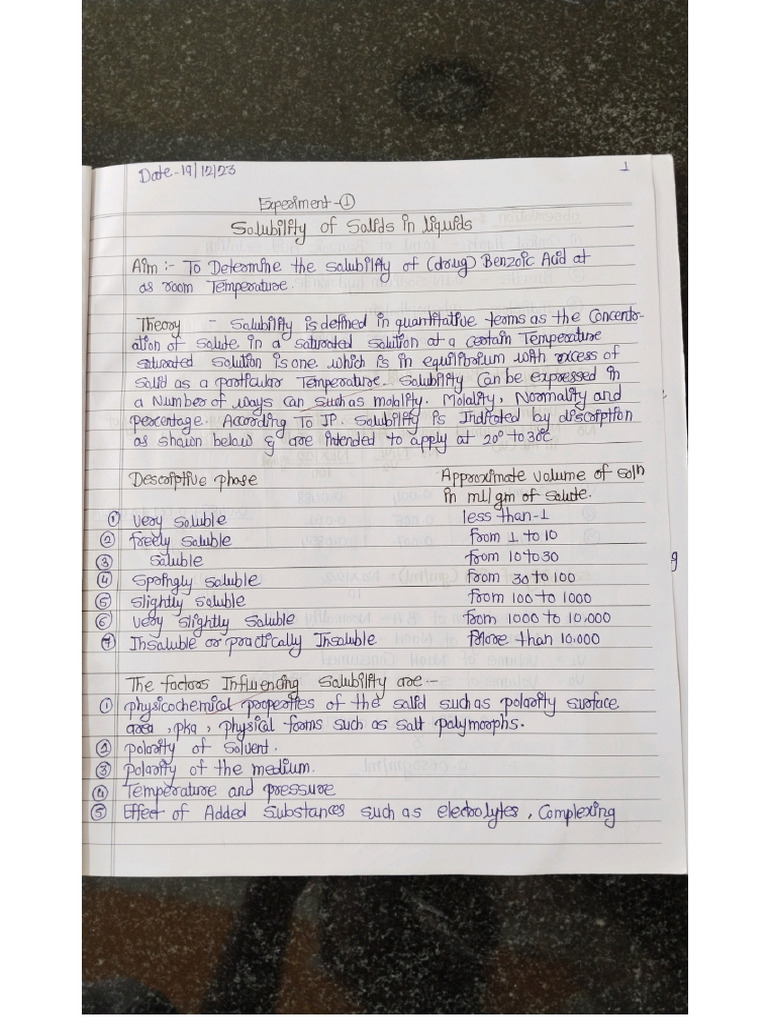 Date-19/12/23
1
Experiment-①
Solubility of Solids in liquids
Aim :- To Determine the solubility of (drug) Benzoic Acid at
as room Temperature.
Theory - Solubility is defined in quantitative terms as the Concentr-
ation of solute in a saturated solution at a certain Temperature
saturated solution is one which is in equilibrium with excess of
solid as a particular Temperature. Solubility Can be expressed in
a Number of ways can such as molality. Molality, Normality and
percentage. According To IP. Solubility is Indicated by discription
as shown below & are intended to apply at 20° to 30c
Descriptive phase Approximate volume of soln
in ml/gm of solute.
① very soluble less than-1
② freely soluble from 1 to 10
③ soluble from 10 to 30
④ Spaingly soluble from 30 to 100
⑤ slightly soluble from 100 to 1000
⑥ very slightly soluble from 1000 to 10,000
⑦ Insoluble or practically Insoluble More than 10,000
The factors Influencing Solubility are :-
① physicochemical properties of the solid such as polarity surface
area, pka, physical forms such as salt polymorphs.
② polarity of solvent.
③ polarity of the medium.
④ Temperature and pressure
⑤ Effect of Added Substances such as electrolytes, Complexing